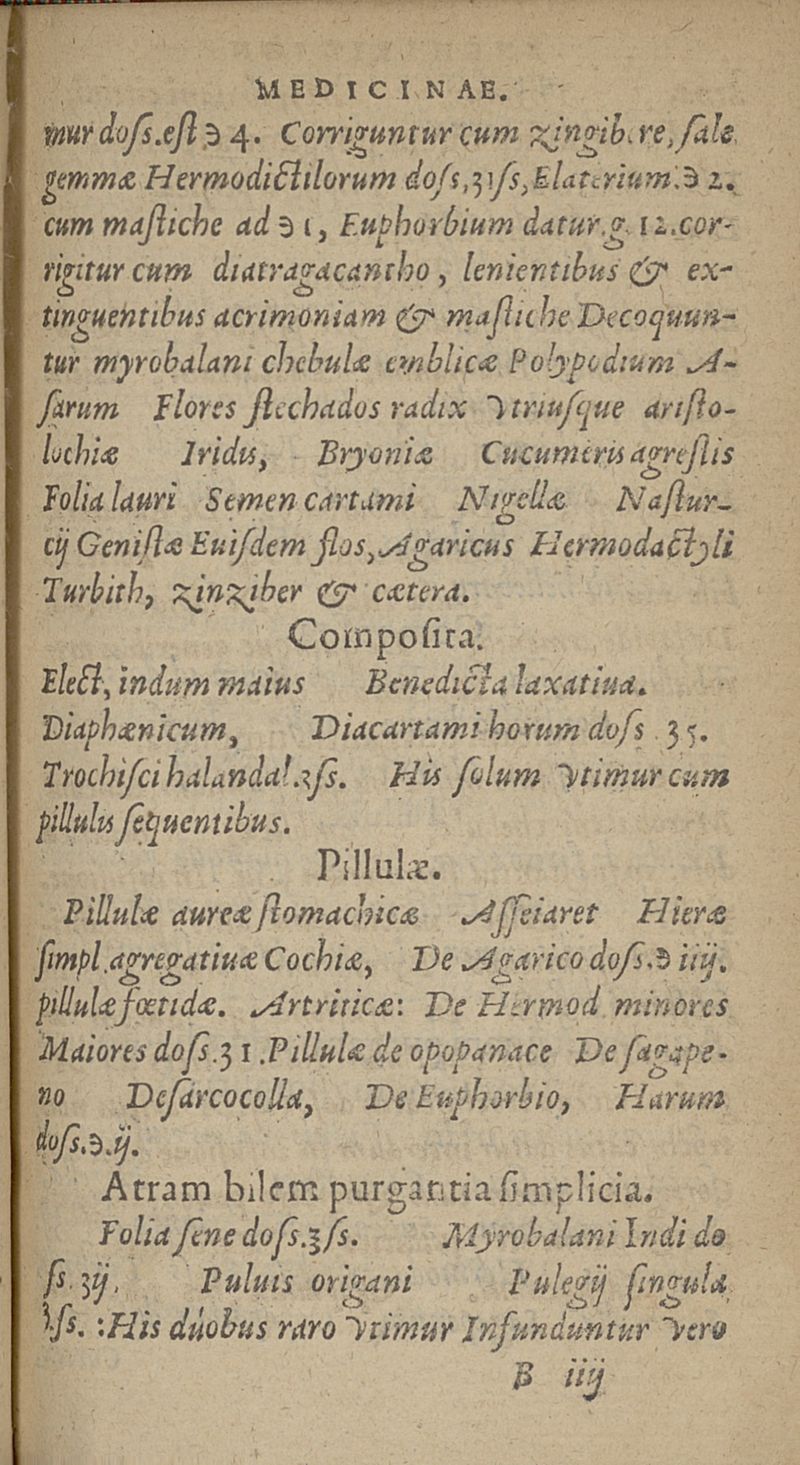 MEDICINAE.
mur doſs.eſt ℈ 4. Corriguntur cum zingib.re, ſale
gemmæ Hermodictilorum doſs,ʒiſs, Elaterium.℈ 2.
cum maſtiche ad ℈ 1, Euphorbium datur.g. 12.cor-
rigitur cum diatragacantho, lenientibus & ex-
tinguentibus acrimoniam & maſtiche Decoquun-
tur myrobalani chebulæ emblicæ Polypodium A-
ſarum Flores ſtechados radix vtriuſque ariſto-
lochiæ Iridis, Bryoniæ Cucumeris agreſtis
Folia lauri Semen cartami Nigellæ Naſtur-
cij Geniſtæ Euiſdem flos, Agaricus Hermodactyli
Turbith, zinziber & cætera.
Compoſita.
Elect, indum maius Benedicta laxatiua.
Diaphænicum, Diacartami horum doſs ʒ 5.
Trochiſci halandal.ʒſs. His ſolum vtimur cum
pillulis ſequentibus.
Pillulæ.
Pillulæ aureæ ſtomachicæ Aſſeiaret Hieræ
ſimpl.agregatiuæ Cochiæ, De Agarico doſs.℈ iiij.
pillulæ fœtidæ. Artriticæ: De Hermod minores
Maiores doſs.ʒ 1.Pillulæ de opopanace De ſagape-
no De ſarcocolla, De Euphorbio, Harum
doſs.℈.ij.
Atram bilem purgantia ſimplicia.
Folia ſene doſs.ʒſs. Myrobalani Indi do
ſs.ʒij. Puluis origani Pulegij ſingula
ʒſs. :His duobus raro vtimur Infunduntur vero
B iiij